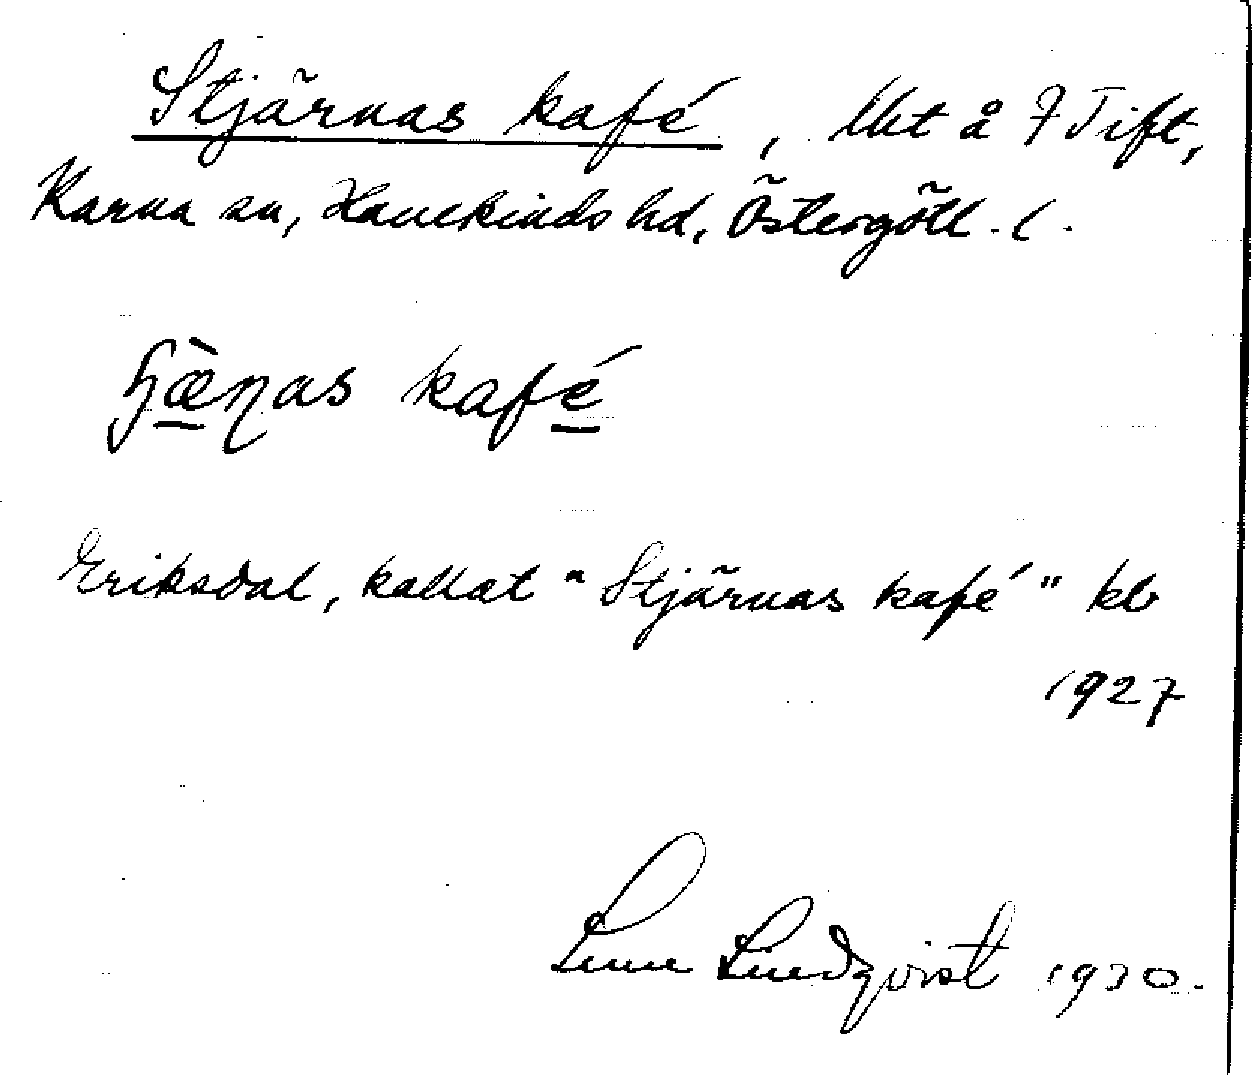 Stjärnas kafé, lht å 7 Tift,
Kärna sn, Hanekinds hd, Östergötl. l.
kafé
Eriksdal, kallat "Stjärnas kafé" kb
1927
Sune Lindqvist 1930.